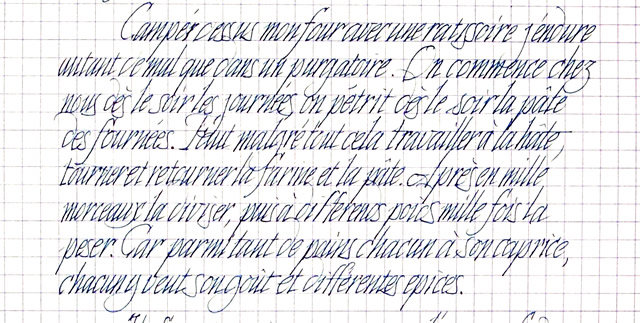 Campé dessus mon four avec une ratissoire j'endure
autant de mal que dans un purgatoire. On commence chez
nous dès le soir les journées on pétrit dès le soir la pâte
des fournées. Il faut malgré tout cela travailler à la hâte,
tourner et retourner la farine et la pâte. Après en mille
morceaux la diviser, puis à différents poids mille fois la
peser. Car parmi tant de pains chacun à son caprice,
chacun y veut son goût et différentes epices.